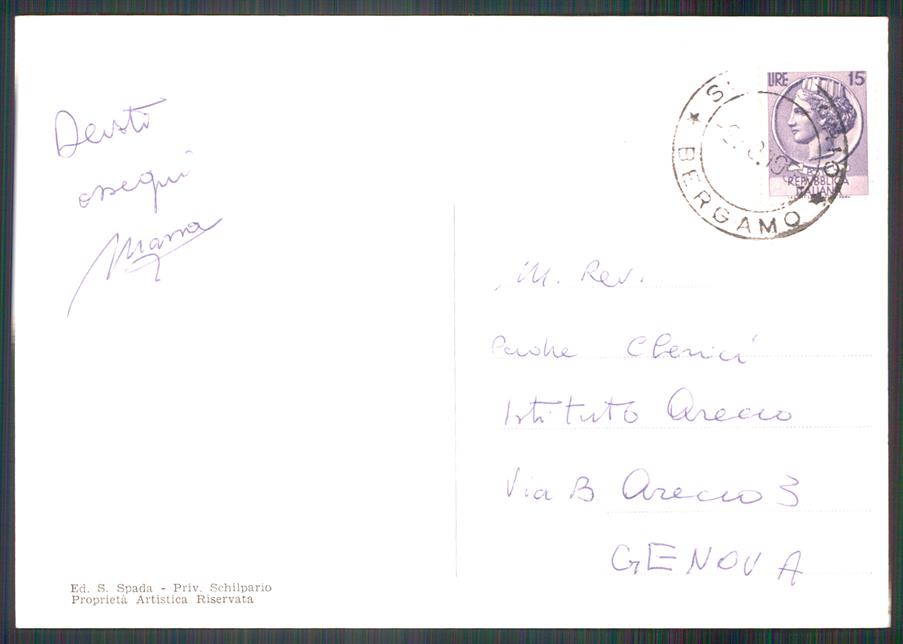 Devoti
ossequi
Massa
LIRE 15
REPUBBLICA
ITALIANA
BERGAMO
M. Rev.
Padre Clerici
Istituto Arecco
Via B Arecco 3
GENOVA
Ed. S. Spada - Priv. Schilpario
Proprietà Artistica Riservata